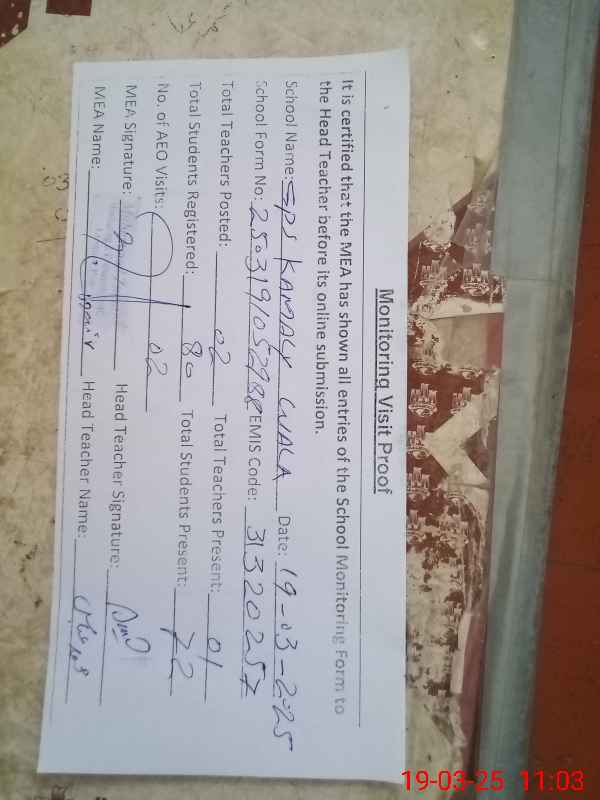 Monitoring Visit Proof
It is certified that the MEA has shown all entries of the School Monitoring Form to
the Head Teacher before its online submission.
School Name: GPS KAMALY WALA Date: 19-03-2025
School Form No: 2503191052988 EMIS Code: 31320257
Total Teachers Posted: 02 Total Teachers Present: 01
Total Students Registered: 80 Total Students Present: 72
No. of AEO Visits: 02
MEA Signature: Head Teacher Signature:
MEA Name: Head Teacher Name:
19-03-25 11:03